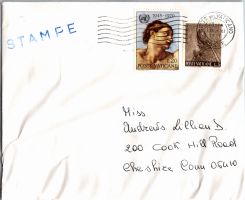 STAMPE
1945-1970
POSTE VATICANE
POSTE VATICANE
Miss
Andrews Lillian D.
200 Cook Hill Road
Cheshire Conn 06410